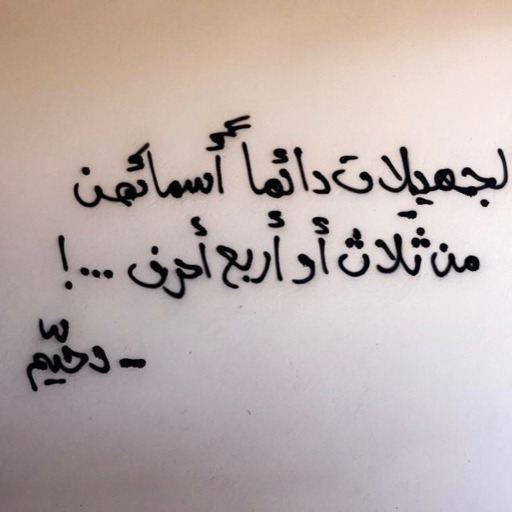 لجميلات دائماً أسمائهن
من ثلاث أو أربع أحرف ...!